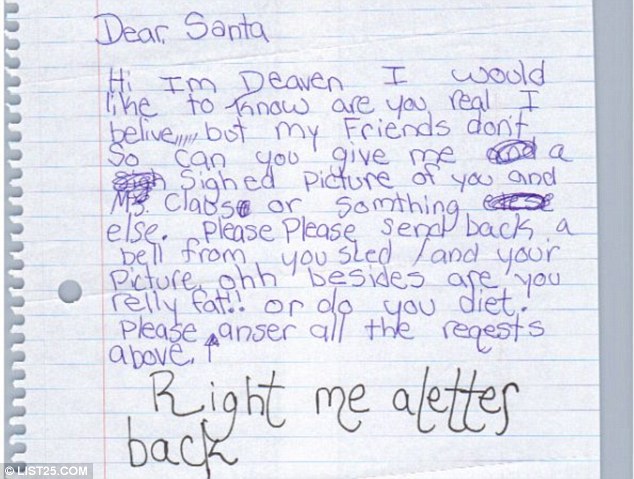 Dear Santa
Hi Im Deaven I would
like to know are you real I
belive,,,,, but my Friends don't
So can you give me a
Sighed picture of you and
Ms. Clause or Somthing
else. Please Please send back a
bell from you sled /and your
Picture. ohh besides are you
relly fat!! or do you diet.
Please anser all the reqests
above. ↑
Right me a letter
back
© LIST25.COM